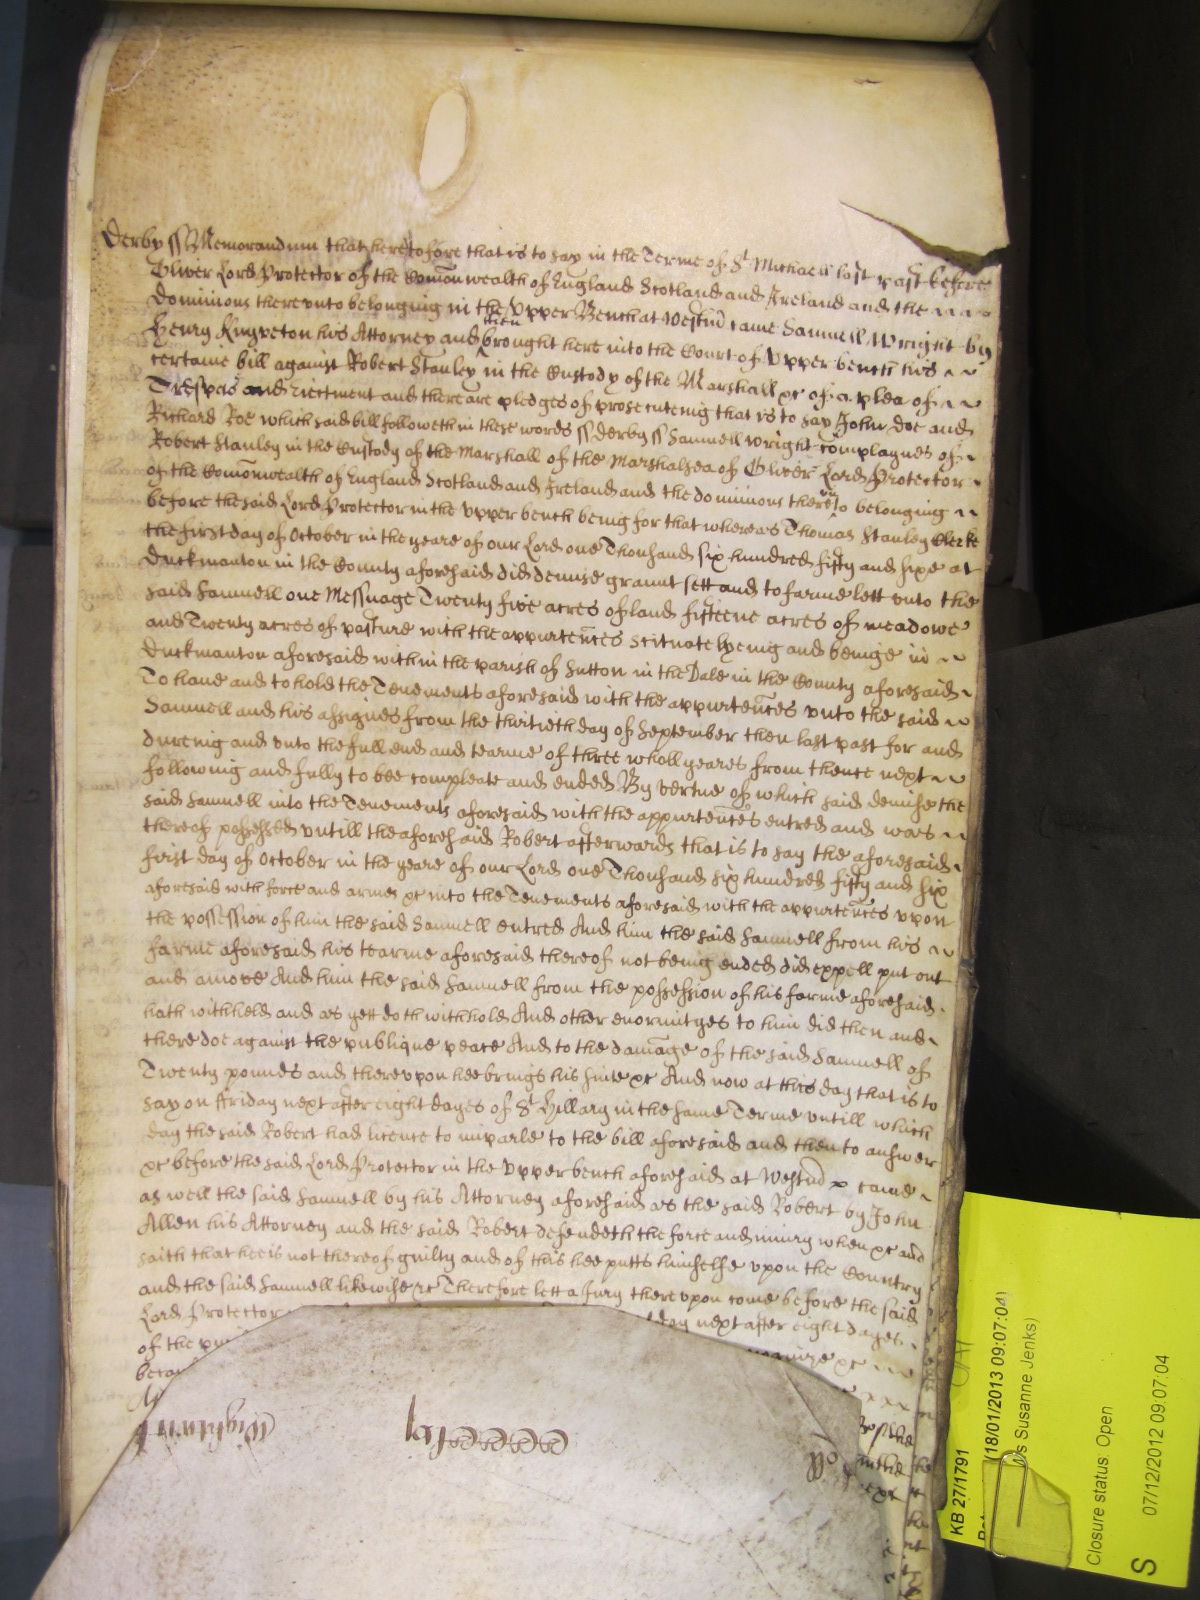 Derby ss Memorandum that heretofore that is to say in the Terme of St Michaell last past before
Oliver Lord Protector of the Comōn wealth of England Scotland and Ireland and the
Dominions therevnto belonging in the Vpper Bench at Westmr came Samuell Wright by
Henry Kingeton his Attorney and then brought here into the Court of Vpper bench his
certaine bill against Robert Stanley in the Custody of the Marshall &c of a plea of
Trespas and eiectment and there are pledges of prosecuteing that is to say John Doe and
Richard Roe which said bill followeth in these words ss Derby ss Samuell Wright complaynes of
Robert Stanley in the Custody of the Marshall of the Marshalsea of Oliver Lord Protector
of the Comōnwealth of England Scotland and Ireland and the dominions therevnto belonging
before the said Lord Protector in the vpper bench being for that whereas Thomas Stanley Clerke
the first day of October in the yeare of our Lord one Thousand six hundred fifty and sixe at
Duckmanton in the County aforesaid did demise graunt sett and to farme lett vnto the
said Samuell one Messuage Twenty five acres of land fifteene acres of meadowe
and Twenty acres of pasture with the appurteñces scituate lyeing and beinge in
Duckmanton aforesaid within the parish of Sutton in the Dale in the County aforesaid
To haue and to hold the Tenements aforesaid with the appurteñces vnto the said
Samuell and his assignes from the thirtieth day of September then last past for and
dureing and vnto the full end and tearme of three wholl yeares from thence next
following and fully to bee compleate and ended By vertue of which said demise the
said Samuell into the Tenements aforesaid with the appurteñces entred and was
thereof possessed vntill the aforesaid Robert afterwards that is to say the aforesaid
first day of October in the yeare of our Lord one Thousand six hundred fifty and six
aforesaid with force and armes &c into the Tenements aforesaid with the appurteñces vpon
the possession of him the said Samuell entred And him the said Samuell from his
farme aforesaid his tearme aforesaid thereof not being ended did expell put out
and amove And him the said Samuell from the possession of his farme aforesaid
hath withheld and as yett doth withhold And other enormityes to him did then and
there doe against the publique peace And to the damage of the said Samuell of
Twenty pounds and therevpon hee brings his suite &c And now at this day that is to
say on ffriday next after eight dayes of St Hillary in the same Terme vntill which
day the said Robert had licence to imparle to the bill aforesaid and then to answer
&c before the said Lord Protector in the Vpper bench aforesaid at Westmr came
as well the said Samuell by his Attorney aforesaid as the said Robert by John
Allen his Attorney and the said Robert defendeth the force and iniury when &c and
saith that hee is not thereof guilty and of this hee putts himselfe vpon the Country
and the said Samuell likewise &c Therefore lett a Jury therevpon come before the said
Lord Protector day next after eight dayes
of the
KB 27/1791
(18/01/2013 09:07:04)
Susanne Jenks)
Closure status: Open
S 07/12/2012 09:07:04